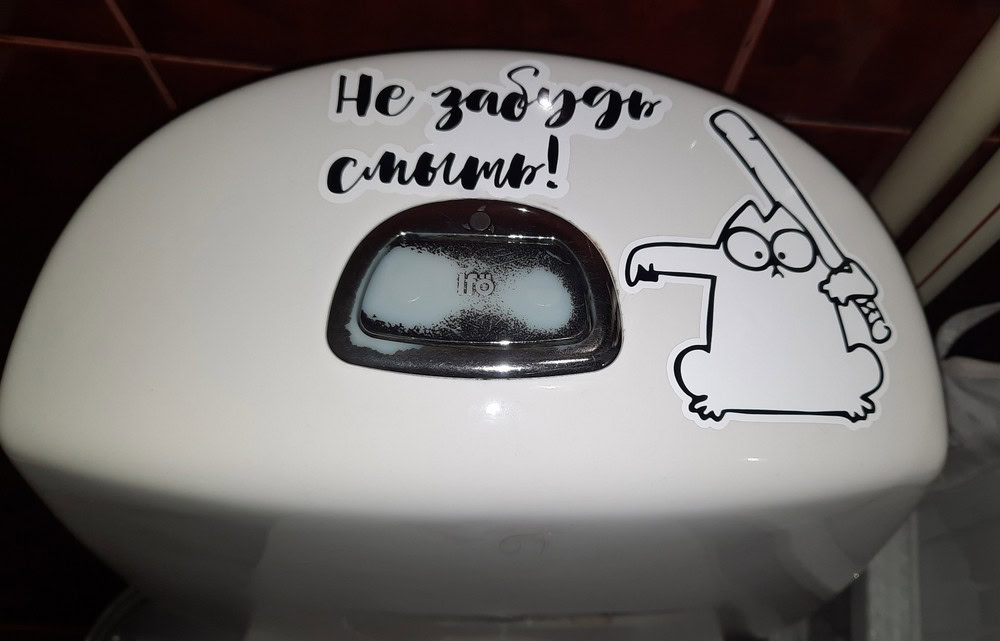 Не забудь
смыть!
Ifö